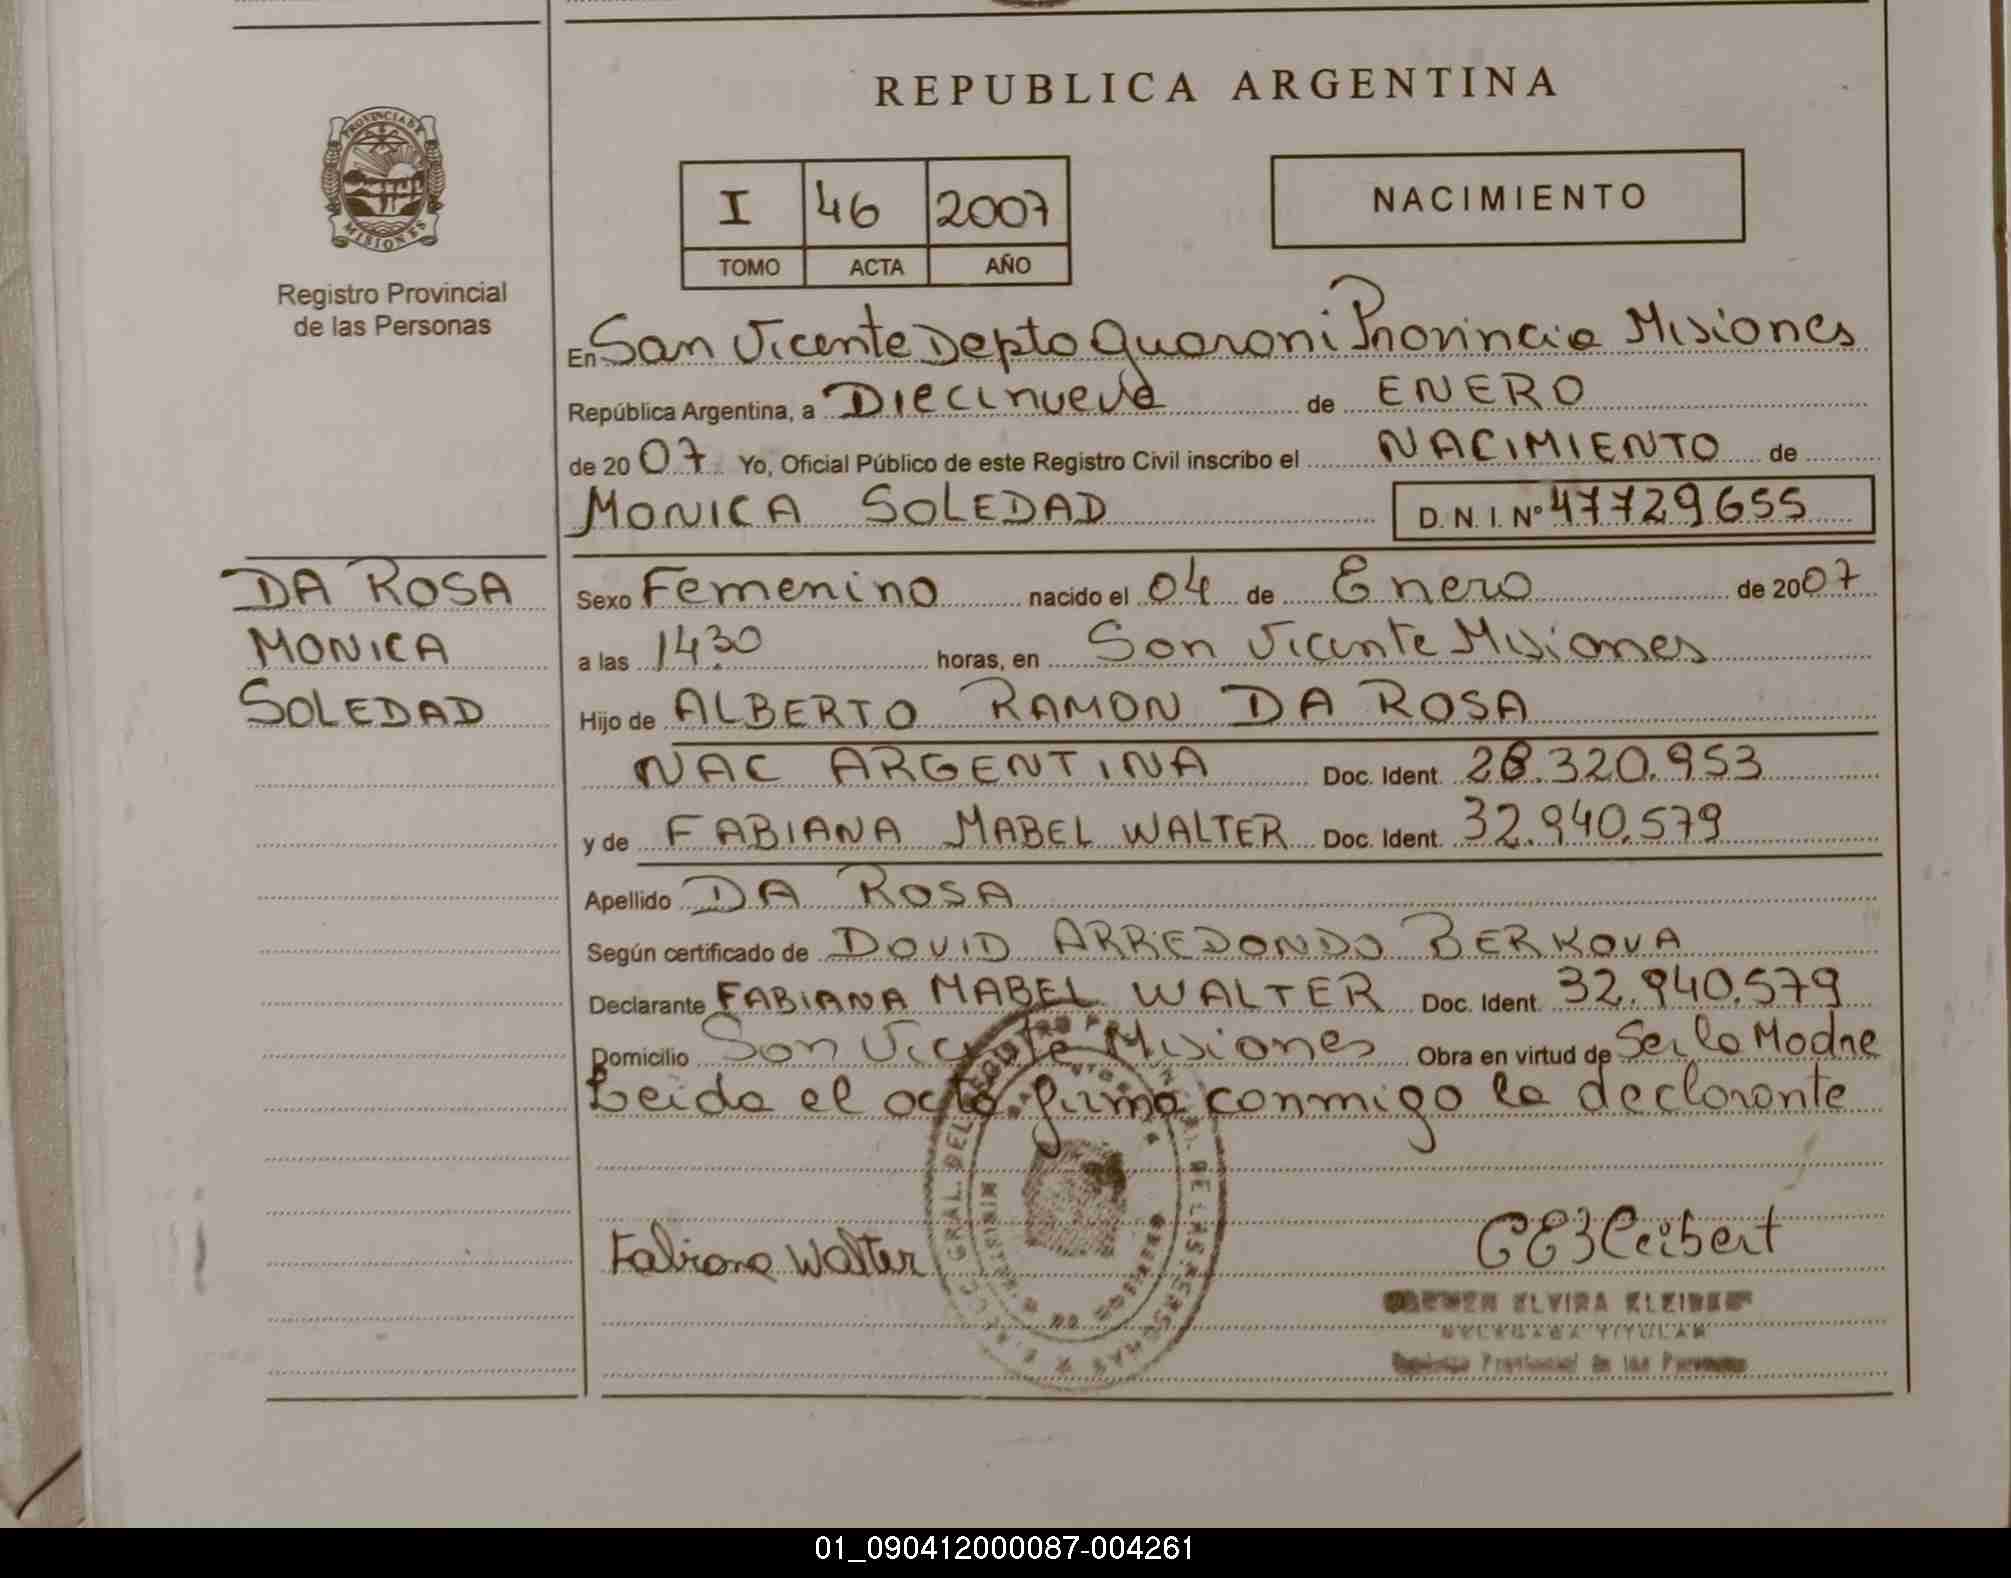 REPUBLICA ARGENTINA
PROVINCIA DE
MISIONES
Registro Provincial
de las Personas
I 46 2007
TOMO ACTA AÑO
NACIMIENTO
En San Vicente Depto Guarani Provincia Misiones
República Argentina, a Diecinueve de ENERO
de 2007 Yo, Oficial Público de este Registro Civil inscribo el NACIMIENTO de
MONICA SOLEDAD D.N.I. Nº 47729655
DA ROSA
MONICA
SOLEDAD
Sexo Femenino nacido el 04 de Enero de 2007
a las 14.30 horas, en San Vicente Misiones
Hijo de ALBERTO RAMON DA ROSA
NAC ARGENTINA Doc. Ident. 28.320.953
y de FABIANA MABEL WALTER Doc. Ident. 32.940.579
Apellido DA ROSA
Según certificado de DOVID ARREDONDO BERKOVA
Declarante FABIANA MABEL WALTER Doc. Ident. 32.940.579
Domicilio San Vicente Misiones Obra en virtud de Ser la Madre
Leida el acta firma conmigo la declarante
Fabiana Walter
CEKleibert
ELVIRA
TITULAR
Provincial de las Personas
01_090412000087-004261